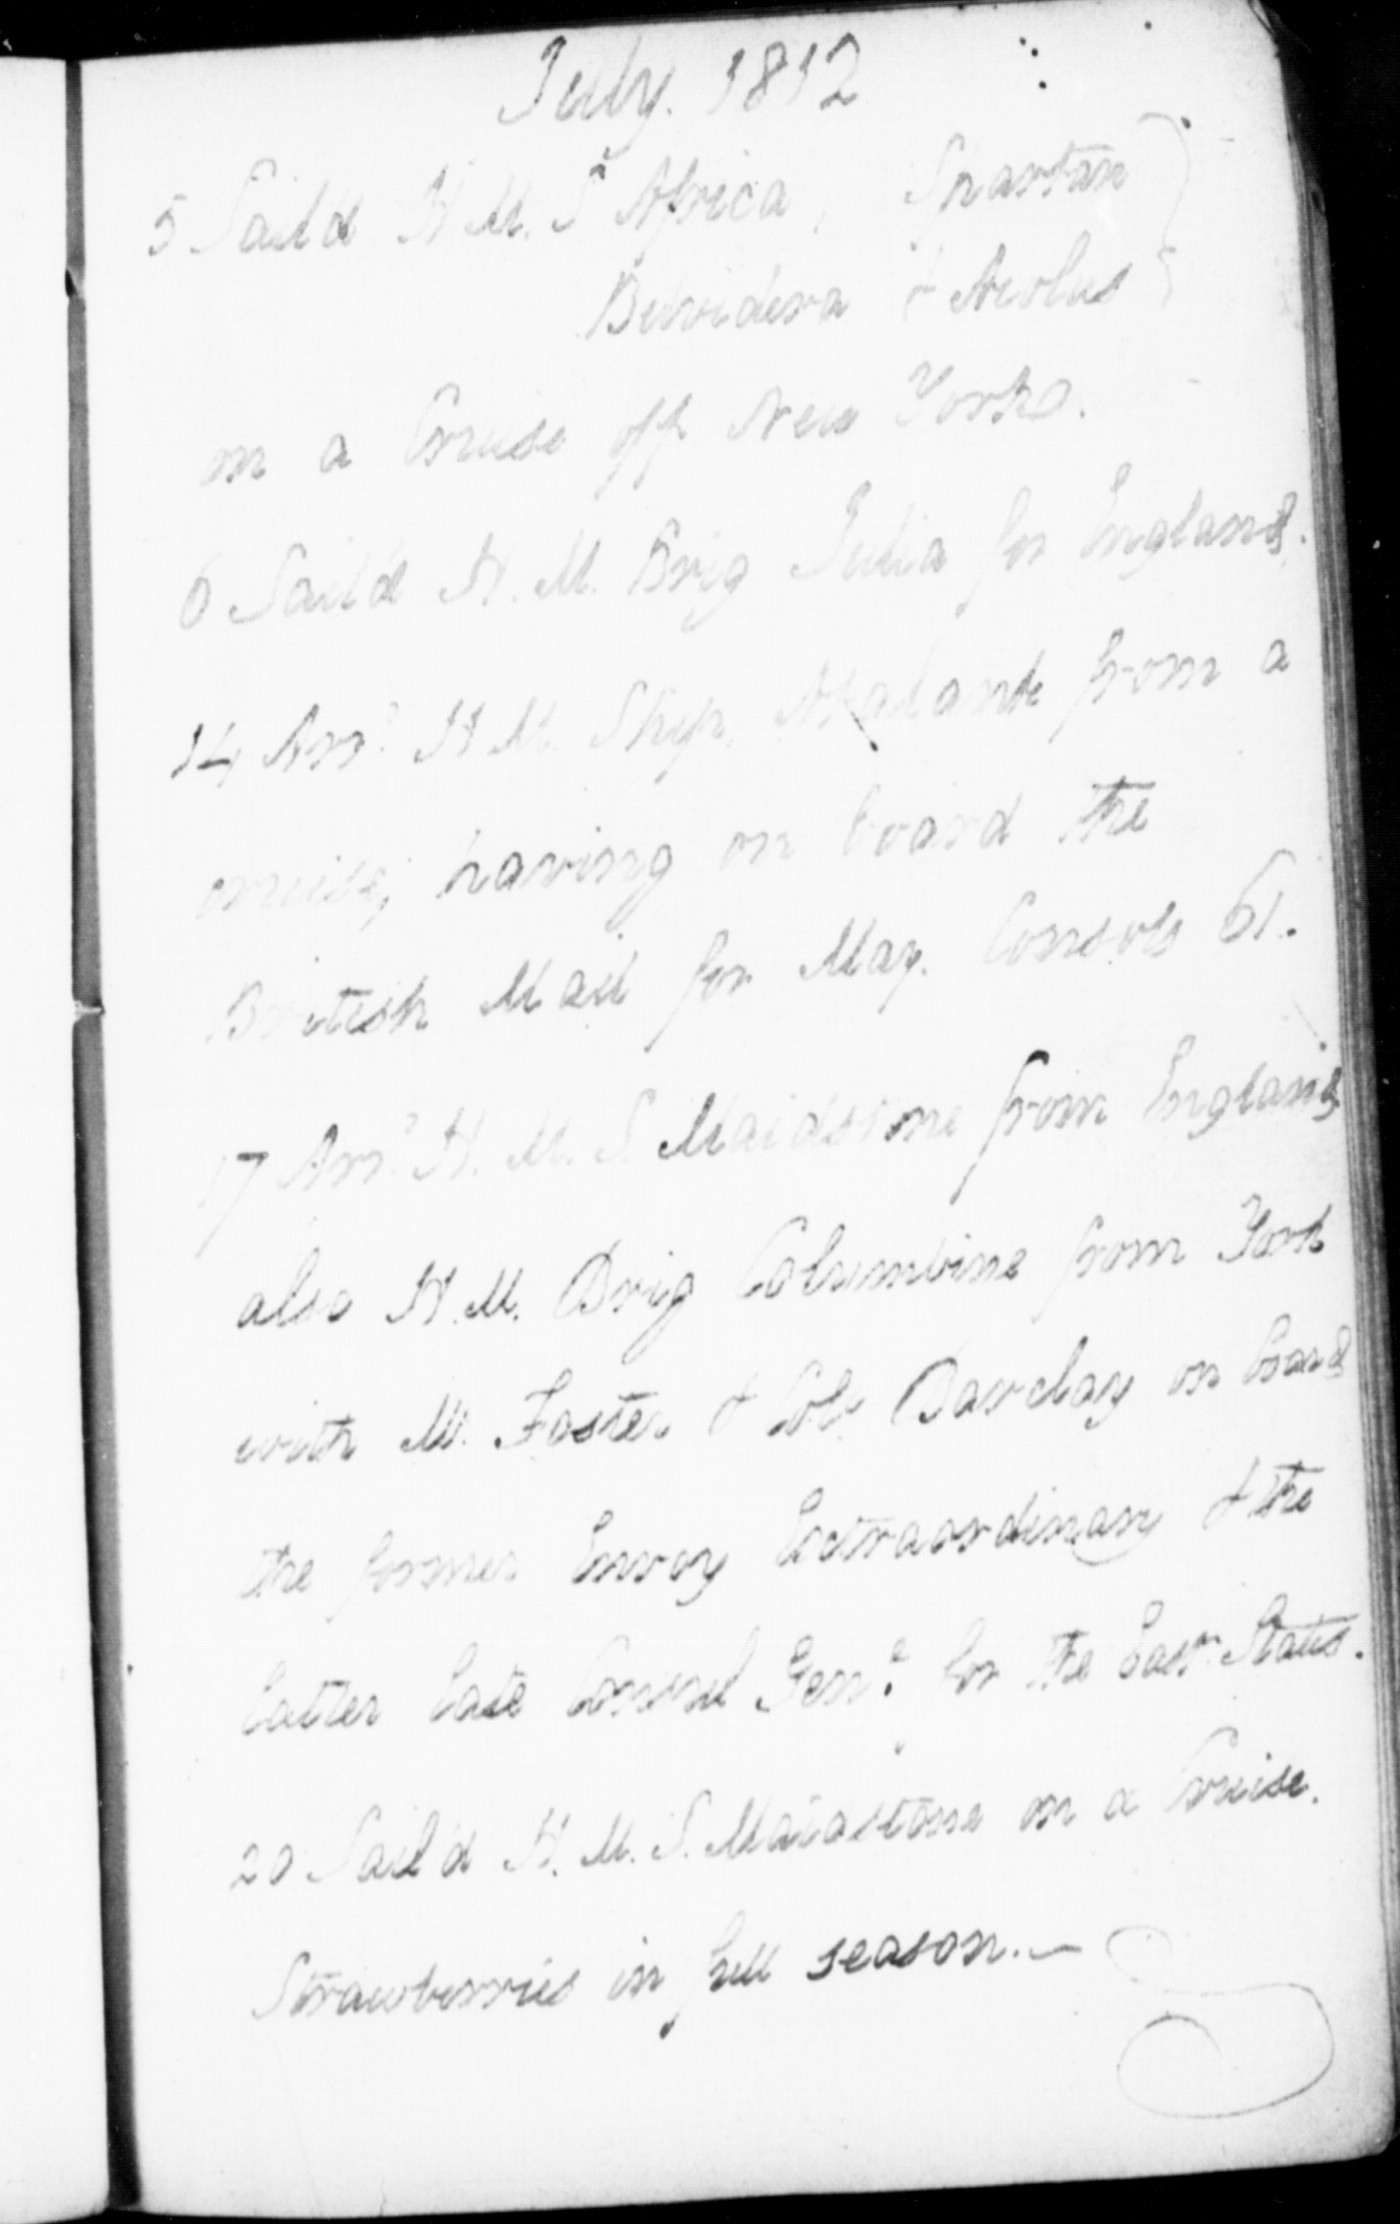 July. 1812
5 Sail'd H M. S Africa, Spartan
Belvidera & Aeolus
on a Cruise off New York.
6 Sail'd H. M. Brig Julia for England.
14 Arr.d H M. Ship Atalante from a
cruise, having on board the
British Mail for May. Consols 61.
17 Arr.d H. M. S. Maidstone from England
also H. M. Brig Columbine from York
with M. Foster & Col. Barclay on board
the former Envoy Extraordinary & the
latter late Consul Gen.l for the East.n States.
20 Sail'd H. M. S. Maidstone on a Cruise.
Strawberries in full season.—